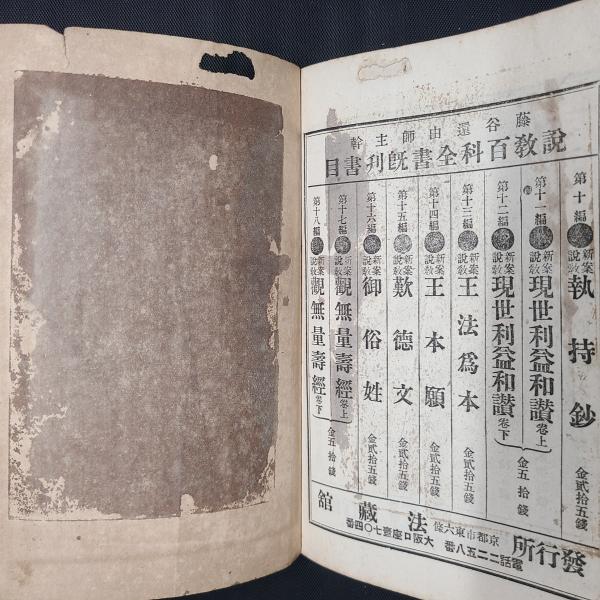 藤谷還由師主幹
說教百科全書既刊書目
第十編 新案說敎 執持鈔 金貳拾五錢
第十一編 新案說敎 現世利益和讚 卷上
第十二編 新案說敎 現世利益和讚 卷下
金五拾錢
第十三編 新案說敎 王法爲本 金貳拾五錢
第十四編 新案說敎 王本願 金貳拾五錢
第十五編 新案說敎 歎德文 金貳拾五錢
第十六編 新案說敎 御俗姓 金貳拾五錢
第十七編 新案說敎 觀無量壽經 卷上
第十八編 新案說敎 觀無量壽經 卷下
金五拾錢
發行所 京都市東六條 法藏館
電話二二五八番 大阪口座壹七〇四番